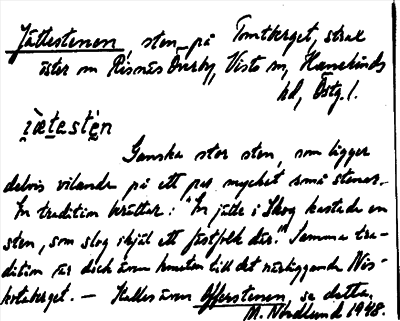 Jättestenen, sten på Tomtberget, strax
öster om Risnäs Överby, Visto sn, Hanekinds
hd, Östg.l.
Ganska stor sten, som ligger
delvis vilande på ett par mycket små stenar.
En tradition berättar: "En jätte i Skog kastade en
sten, som slog ihjäl ett fästfolk där." Samma tra-
dition är dock även knuten till det närliggande Nis-
kotaberget. — Kallas även Offerstenen, se detta.
M. Nordlund 1948.